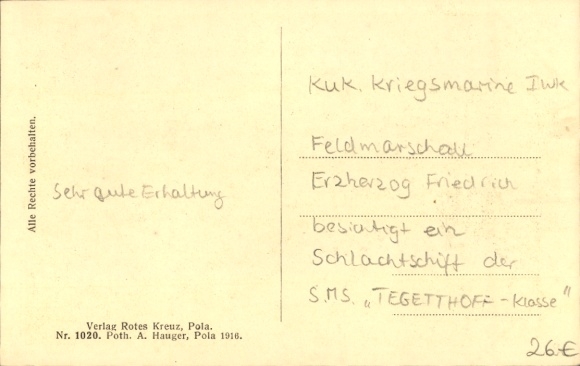 Alle Rechte vorbehalten.
Sehr gute Erhaltung
Verlag Rotes Kreuz, Pola.
Nr. 1020. Poth. A. Hauger, Pola 1916.
KuK. Kriegsmarine I.wk
Feldmarschall
Erzherzog Friedrich
besichtigt ein
Schlachtschiff der
S.M.S. „TEGETTHOFF-Klasse"
26.€